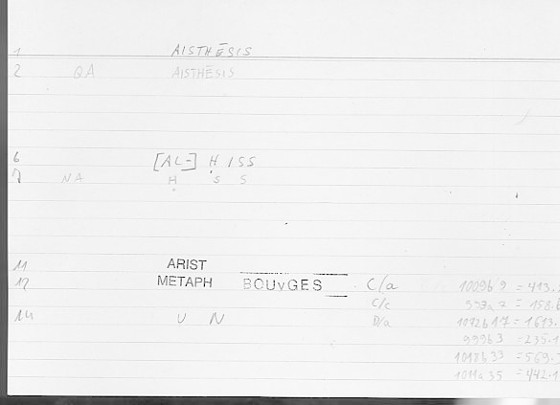 1 AISTHĒSIS
2 QA AISTHĒSIS
6 [AL-] Ḥ ISS
7 NA Ḥ S S
11 ARIST
12 METAPH BOUYGES C/a 1009b 9 = 413.
C/c 993a 2 = 158.
14 V N D/a 1072b 17 = 1613.
999b 3 = 235.1
1018b 33 = 569.
1011a 35 = 442.1